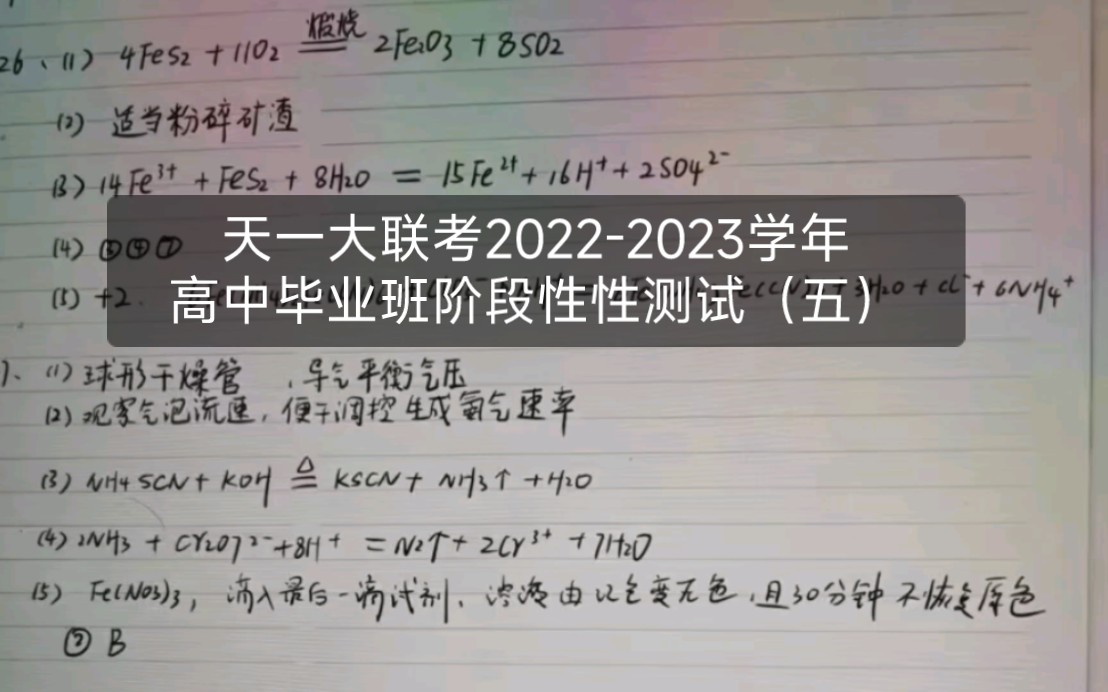 26、(1) 4FeS2 + 11O2 煅烧 == 2Fe2O3 + 8SO2
(2) 适当粉碎矿渣
(3) 14Fe3+ + FeS2 + 8H2O = 15Fe2+ + 16H+ + 2SO42-
天一大联考2022-2023学年
(4) ③④⑦
高中毕业班阶段性性测试（五）
(5) +2. H2O + Cl- + 6NH4+
7、(1) 球形干燥管 ，导气平衡气压
(2) 观察气泡流速，便于调控生成氨气速率
(3) NH4SCN + KOH △ = KSCN + NH3↑ + H2O
(4) 2NH3 + Cr2O72- + 8H+ = N2↑ + 2Cr3+ + 7H2O
(5) Fe(NO3)3，滴入最后一滴试剂，溶液由红色变无色，且30分钟不恢复原色
② B